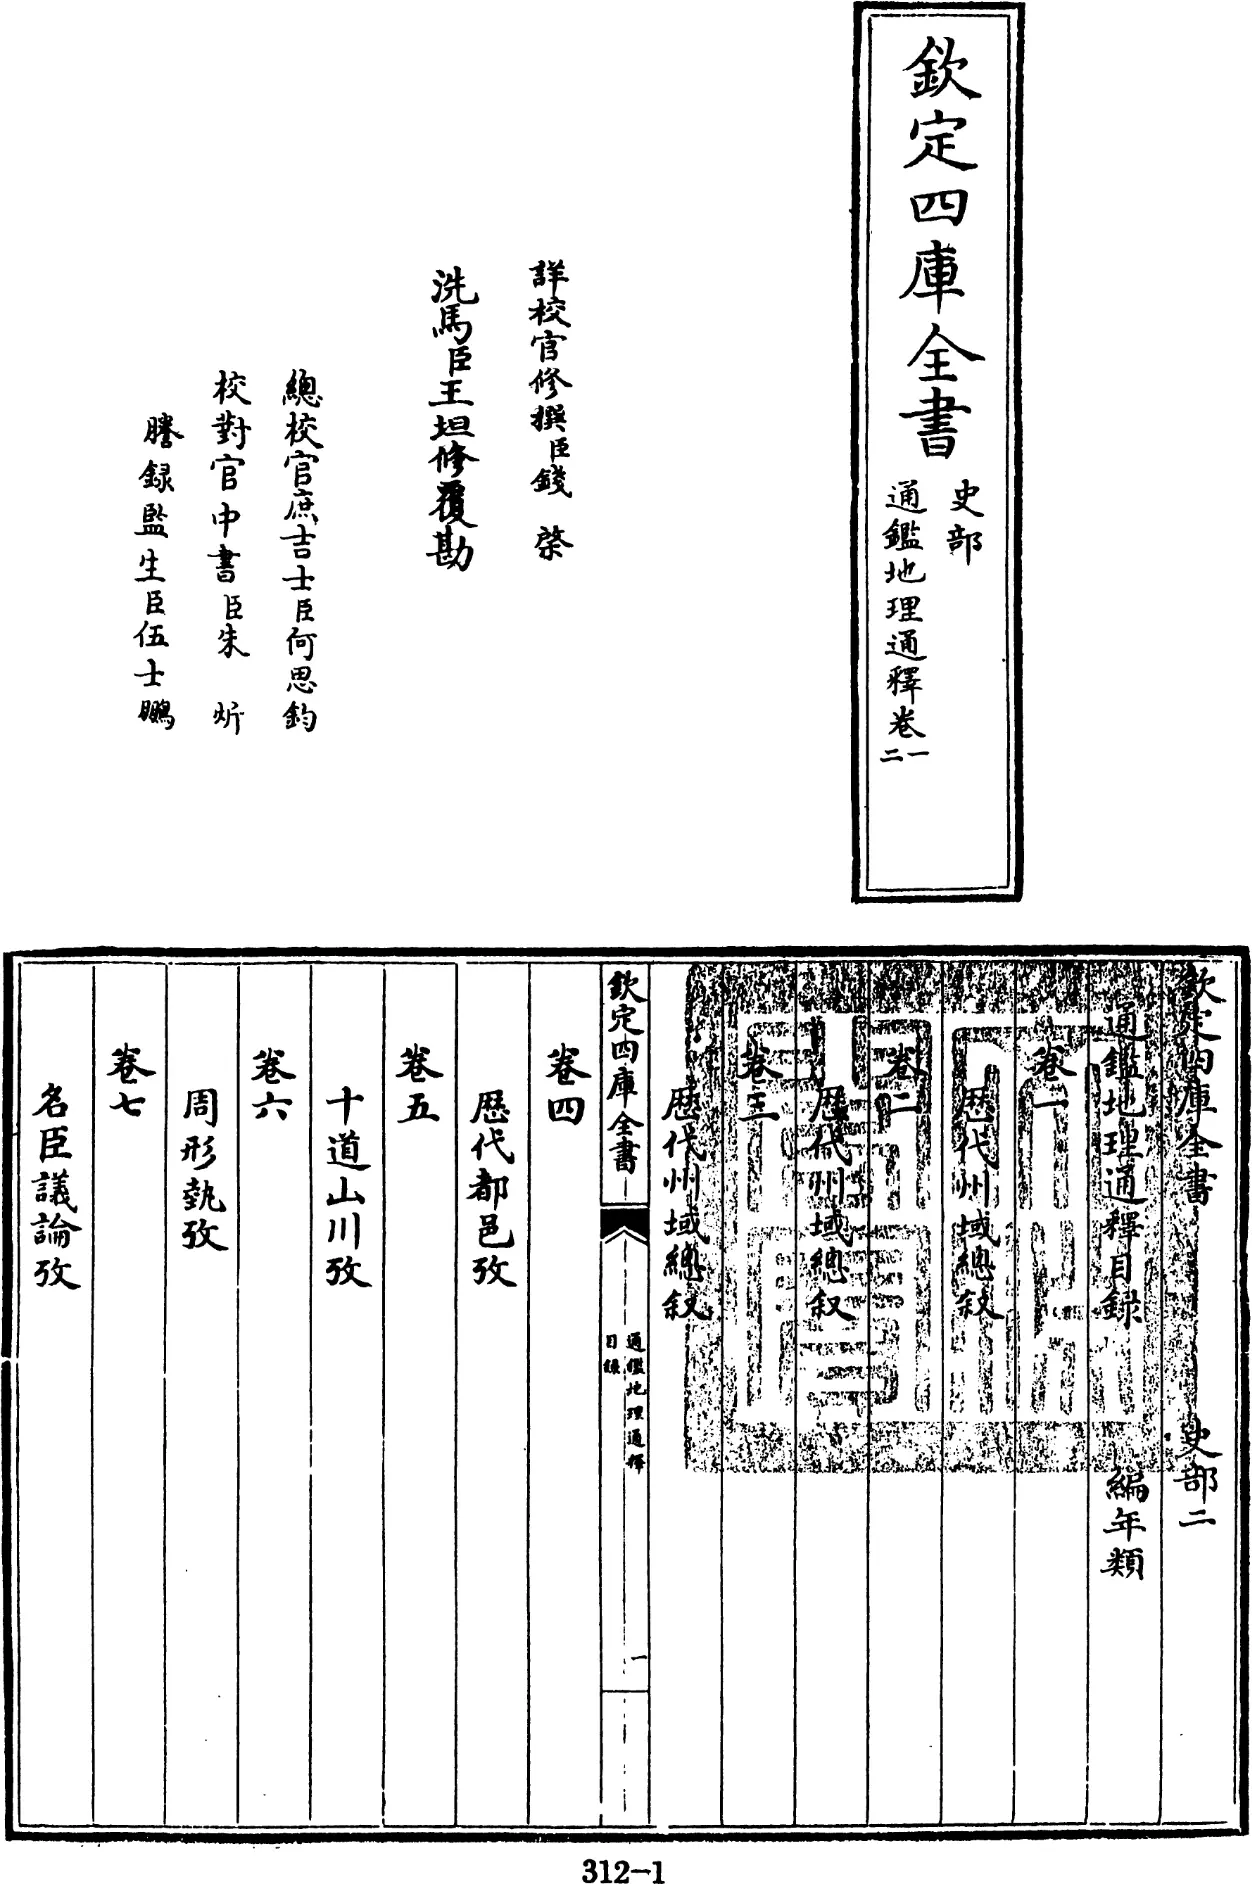 欽定四庫全書
史部
通鑑地理通釋卷一
二
詳校官修撰臣錢棨
洗馬臣王坦修覆勘
總校官庶吉士臣何思鈞
校對官中書臣朱炘
謄録監生臣伍士鵬
欽定四庫全書 史部二
通鑑地理通釋目録 編年類
卷一
歴代州域總叙
卷二
歴代州域總叙
卷三
歴代州域總叙
欽定四庫全書
通鑑地理通釋
目録
一
卷四
歴代都邑攷
卷五
十道山川攷
卷六
周形埶攷
卷七
名臣議論攷
312-1